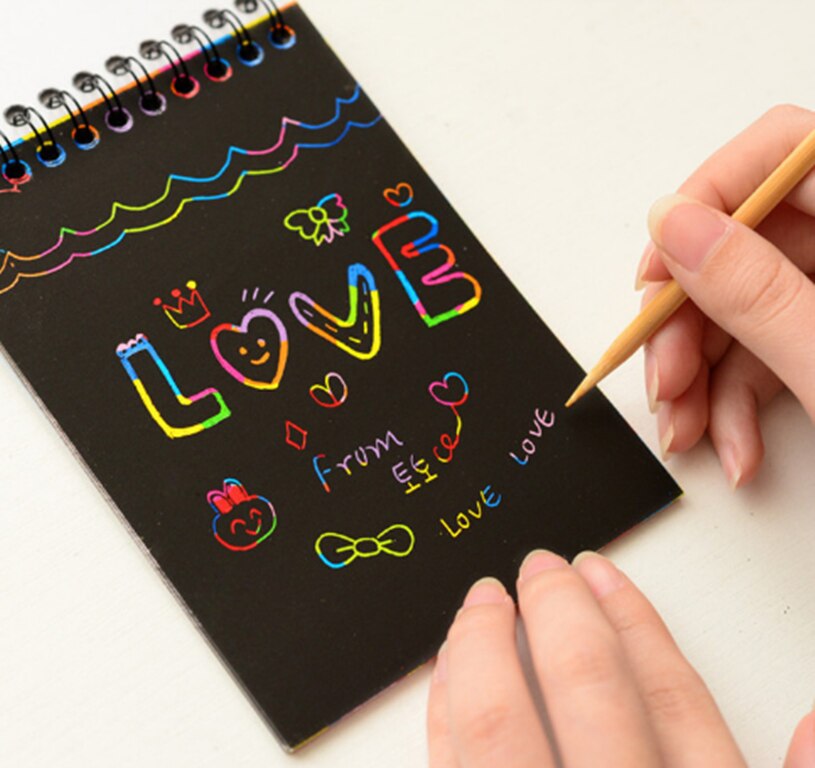 LOVE
From 토토
LOVE LOVE